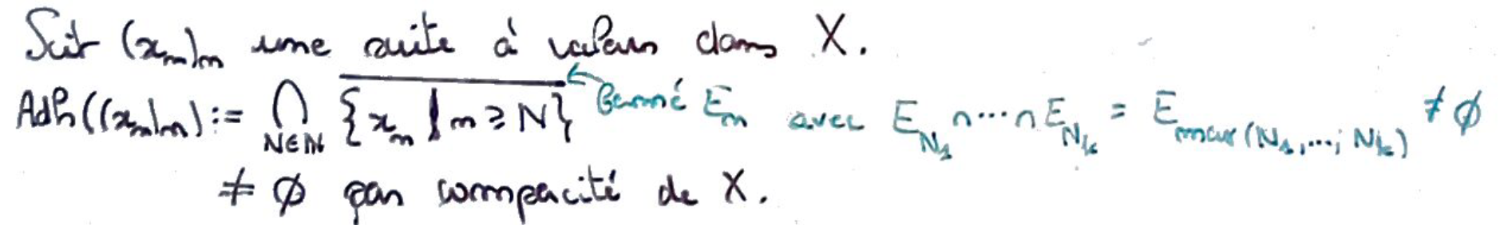 Soit (xₙ)ₙ une suite à valeurs dans X.
Adh((xₙ)ₙ) := ⋂_{N∈ℕ} \overline{{xₙ | n ≥ N}} ← fermé Eₙ avec E_{N₁} ∩ ⋯ ∩ E_{Nₖ} = E_{max(N₁, …, Nₖ)} ≠ ∅
≠ ∅ par compacité de X.